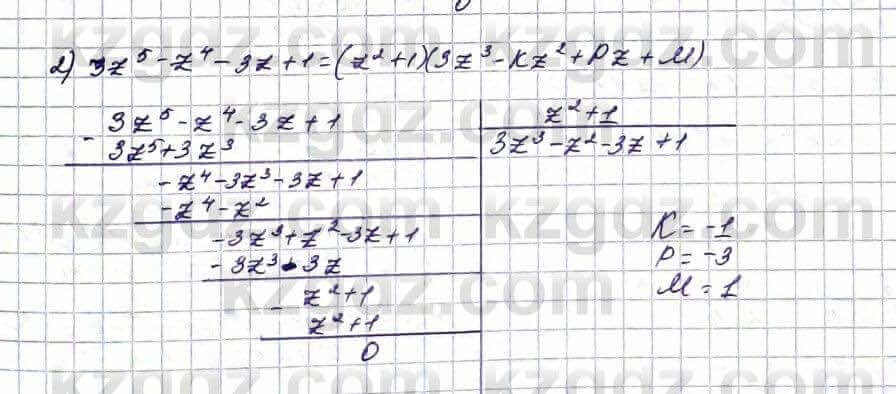 2) 3z⁵ - z⁴ - 3z + 1 = (z² + 1)(3z³ - Kz² + Pz + M)
3z⁵ - z⁴ - 3z + 1 | z² + 1
- 3z⁵ + 3z³ | 3z³ - z² - 3z + 1
- z⁴ - 3z³ - 3z + 1
- z⁴ - z²
- 3z³ + z² - 3z + 1
- 3z³ - 3z
- z² + 1
z² + 1
0
K = -1
P = -3
M = 1
kzgdz.com